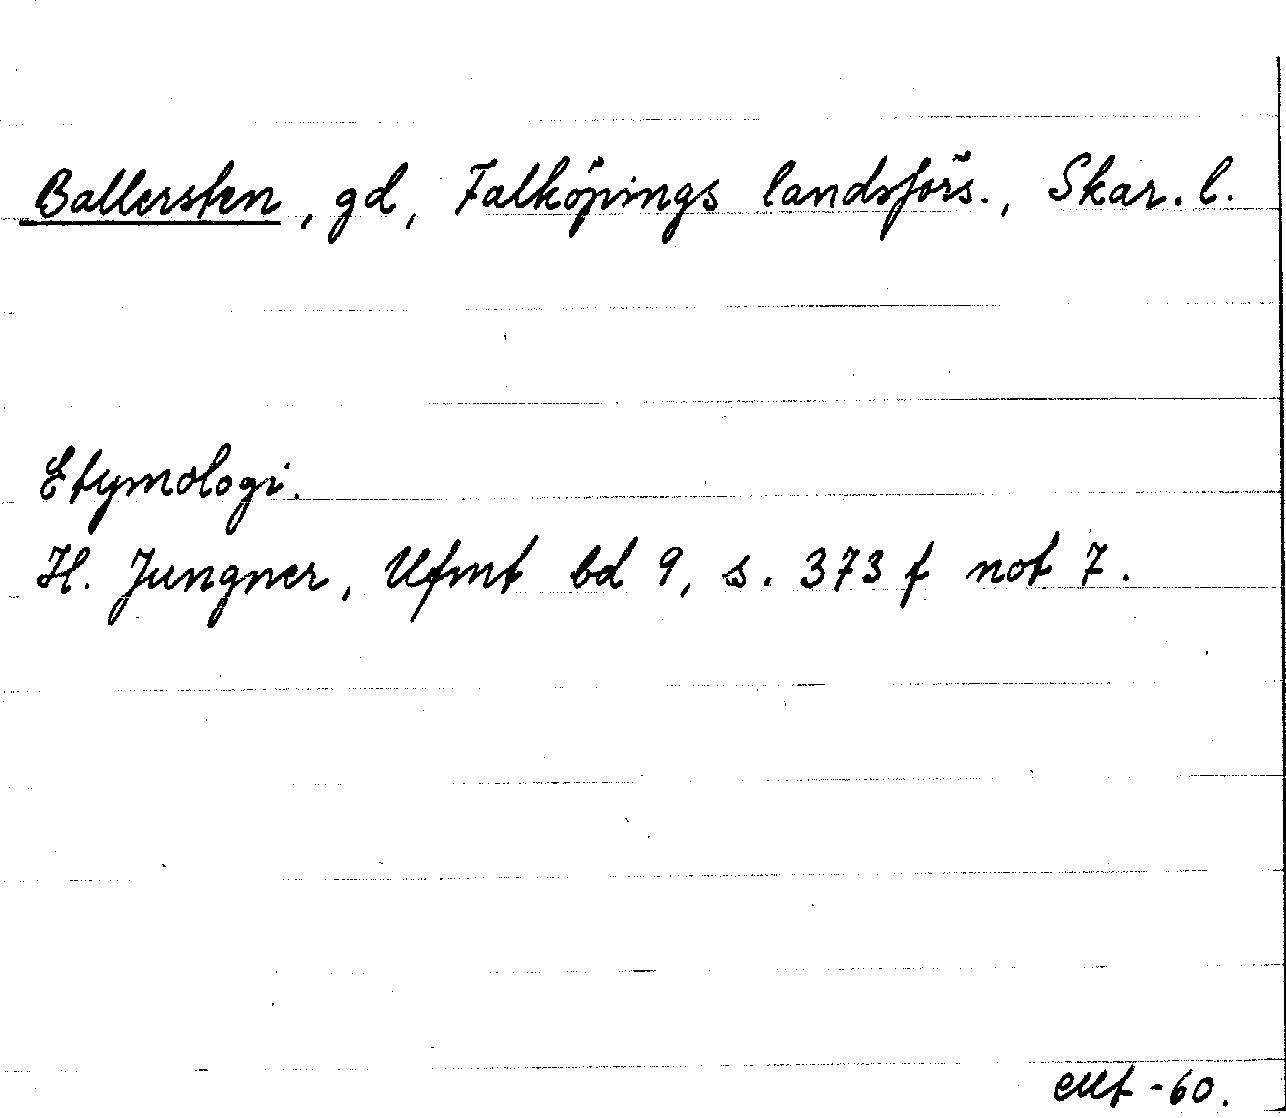 Ballersten, gd, Falköpings landsförs., Skar. l.
Etymologi.
H. Jungner, Ufmt bd 9, s. 373 f not 7.
-60.